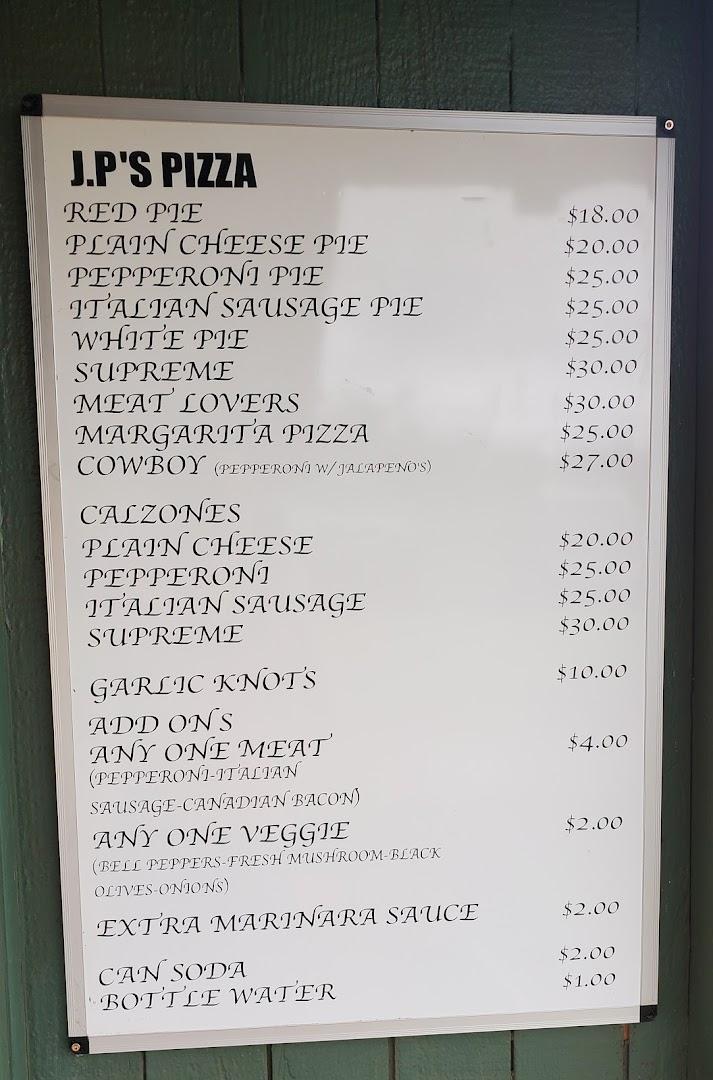 J.P'S PIZZA
RED PIE $18.00
PLAIN CHEESE PIE $20.00
PEPPERONI PIE $25.00
ITALIAN SAUSAGE PIE $25.00
WHITE PIE $25.00
SUPREME $30.00
MEAT LOVERS $30.00
MARGARITA PIZZA $25.00
COWBOY (PEPPERONI W/JALAPENO'S) $27.00
CALZONES
PLAIN CHEESE $20.00
PEPPERONI $25.00
ITALIAN SAUSAGE $25.00
SUPREME $30.00
GARLIC KNOTS $10.00
ADD ON S
ANY ONE MEAT $4.00
(PEPPERONI-ITALIAN
SAUSAGE-CANADIAN BACON)
ANY ONE VEGGIE $2.00
(BELL PEPPERS-FRESH MUSHROOM-BLACK
OLIVES-ONIONS)
EXTRA MARINARA SAUCE $2.00
CAN SODA $2.00
BOTTLE WATER $1.00